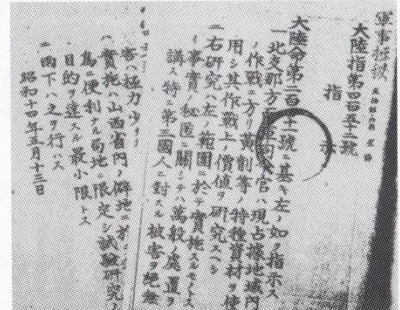 軍事極秘
大陸指第四百五十二號
指示
大陸命第二百四十一號ニ基キ左ノ如ク指示ス
一、北支那方面軍司令官ハ現占據地域內
ノ作戰ニ方リ黃剤等ノ特種資材ヲ使
用シ其作戰上ノ價値ヲ研究スヘシ
二、右研究ハ左ノ範圍ニ於テ實施スルモノトス
イ、事實ノ秘匿ニ關シテハ萬般ノ處置ヲ
講ス特ニ第三國人ニ對スル被害ヲ絕無
害ハ極力少ナ
ハ、實施ハ山西省內ノ僻地ニ於テ
爲ニ便利ナル局地ニ限定シ試驗研究ノ
目的ヲ達スル最小限トス
ニ、雨下ハ之ヲ行ハス
昭和十四年五月十三日